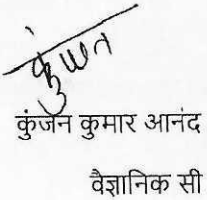 कुंजन कुमार आनंद
वैज्ञानिक सी